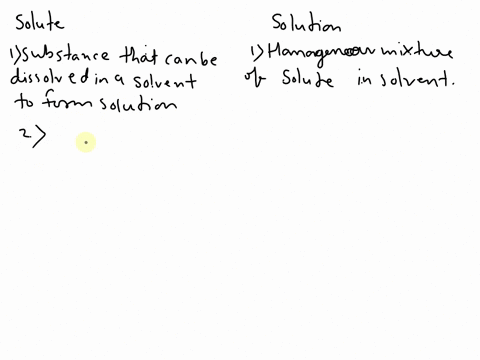 Solute
1) Substance that can be
dissolved in a solvent
to form solution
2)
Solution
1) Homogeneous mixture
of Solute in solvent.